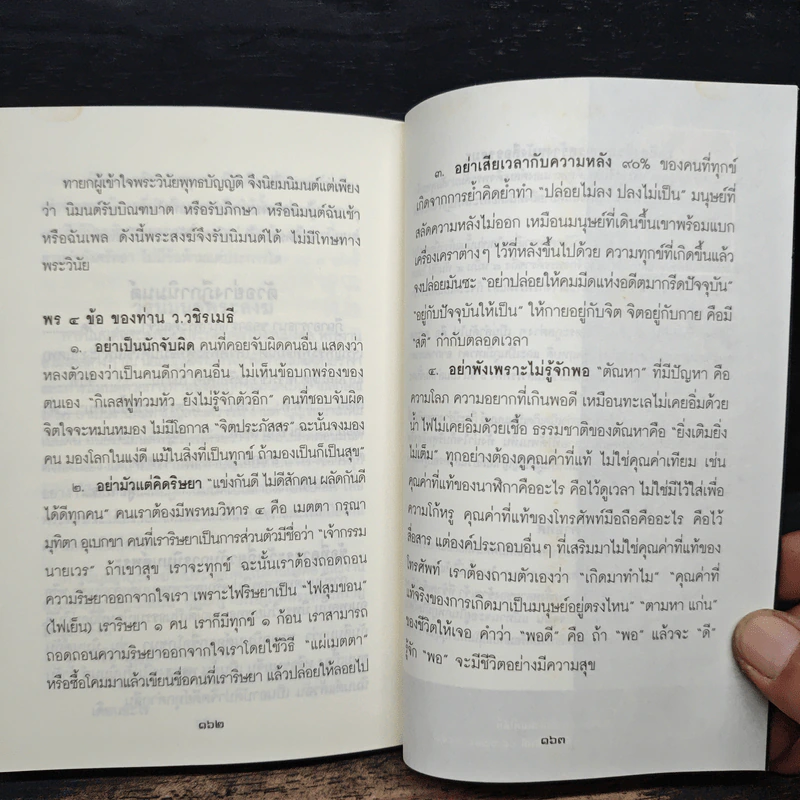 ทายกผู้เข้าใจพระวินัยพุทธบัญญัติ จึงนิยมนิมนต์แต่เพียง
ว่า นิมนต์รับบิณฑบาต หรือรับภิกษา หรือนิมนต์ฉันเช้า
หรือฉันเพล ดังนี้พระสงฆ์จึงรับนิมนต์ได้ ไม่มีโทษทาง
พระวินัย
พร ๔ ข้อ ของท่าน ว.วชิรเมธี
๑. อย่าเป็นนักจับผิด คนที่คอยจับผิดคนอื่น แสดงว่า
หลงตัวเองว่าเป็นคนดีกว่าคนอื่น ไม่เห็นข้อบกพร่องของ
ตนเอง "กิเลสฟูท่วมหัว ยังไม่รู้จักตัวอีก" คนที่ชอบจับผิด
จิตใจจะหม่นหมอง ไม่มีโอกาส "จิตประภัสสร" ฉะนั้นจงมอง
คน มองโลกในแง่ดี แม้ในสิ่งที่เป็นทุกข์ ถ้ามองเป็นก็เป็นสุข"
๒. อย่ามัวแต่คิดริษยา "แข่งกันดี ไม่ดีสักคน ผลัดกันดี
ได้ดีทุกคน" คนเราต้องมีพรหมวิหาร ๔ คือ เมตตา กรุณา
มุทิตา อุเบกขา คนที่เราริษยาเป็นการส่วนตัวมีชื่อว่า "เจ้ากรรม
นายเวร" ถ้าเขาสุข เราจะทุกข์ ฉะนั้นเราต้องถอดถอน
ความริษยาออกจากใจเรา เพราะไฟริษยาเป็น "ไฟสุมขอน"
(ไฟเย็น) เราริษยา ๑ คน เราก็มีทุกข์ ๑ ก้อน เราสามารถ
ถอดถอนความริษยาออกจากใจเราโดยใช้วิธี "แผ่เมตตา"
หรือซื้อโคมมาแล้วเขียนชื่อคนที่เราริษยา แล้วปล่อยให้ลอยไป
๑๖๒
๓. อย่าเสียเวลากับความหลัง ๙๐% ของคนที่ทุกข์
เกิดจากการย้ำคิดย้ำทำ "ปล่อยไม่ลง ปลงไม่เป็น" มนุษย์ที่
สลัดความหลังไม่ออก เหมือนมนุษย์ที่เดินขึ้นเขาพร้อมแบก
เครื่องเคราต่างๆ ไว้ที่หลังขึ้นไปด้วย ความทุกข์ที่เกิดขึ้นแล้ว
จงปล่อยมันซะ "อย่าปล่อยให้คมมีดแห่งอดีตมากรีดปัจจุบัน"
"อยู่กับปัจจุบันให้เป็น" ให้กายอยู่กับจิต จิตอยู่กับกาย คือมี
"สติ" กำกับตลอดเวลา
๔. อย่าพังเพราะไม่รู้จักพอ "ตัณหา" ที่มีปัญหา คือ
ความโลภ ความอยากที่เกินพอดี เหมือนทะเลไม่เคยอิ่มด้วย
น้ำ ไฟไม่เคยอิ่มด้วยเชื้อ ธรรมชาติของตัณหาคือ "ยิ่งเติมยิ่ง
ไม่เต็ม" ทุกอย่างต้องดูคุณค่าที่แท้ ไม่ใช่คุณค่าเทียม เช่น
คุณค่าที่แท้ของนาฬิกาคืออะไร คือไว้ดูเวลา ไม่ใช่มีไว้ใส่เพื่อ
ความโก้หรู คุณค่าที่แท้ของโทรศัพท์มือถือคืออะไร คือไว้
สื่อสาร แต่องค์ประกอบอื่นๆ ที่เสริมมาไม่ใช่คุณค่าที่แท้ของ
โทรศัพท์ เราต้องถามตัวเองว่า "เกิดมาทำไม" "คุณค่าที่
แท้จริงของการเกิดมาเป็นมนุษย์อยู่ตรงไหน" "ตามหา แก่น"
ของชีวิตให้เจอ คำว่า "พอดี" คือ ถ้า "พอ" แล้วจะ "ดี"
รู้จัก "พอ" จะมีชีวิตอย่างมีความสุข
๑๖๓